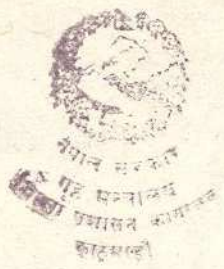 नेपाल सरकार
गृह मन्त्रालय
जिल्ला प्रशासन कार्यालय
काठमाण्डौ